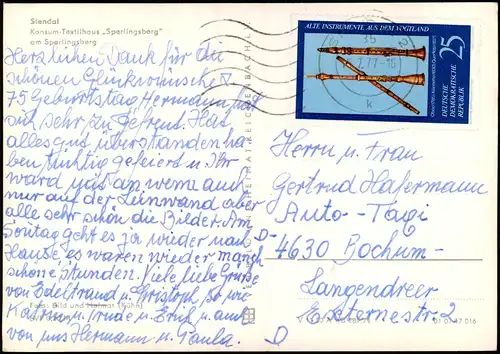 Stendal
Konsum-Textilhaus „Sperlingsberg"
am Sperlingsberg
Herzlichen Dank für die
schönen Glückwünsche z.
75 Geburtstag, Hermann hat
sich sehr gefreut. Hat
alles gut überstanden ha-
ben tüchtig gefeiert u Ihr
ward mit wenn auch
nur auf der Leinwand aber
alle sehr schön die Bilder. Am
Sontag geht es ja wieder nach
Hause, es waren wieder manch
schöne stunden. Viele liebe Grüße
von Edeltraud u. Christoph so wie
Katrin u. Trude u. Erich u. auch
von uns Hermann u. Paula.
Foto: Bild und Heimat
ALTE INSTRUMENTE AUS DEM VOGTLAND
25
DEUTSCHE
DEMOKRATISCHE
REPUBLIK
Herrn u. Frau
Gertrud Hafermann
Auto-Tagi
D-
4630 Bochum-
Langendreer
Externestr. 2
D